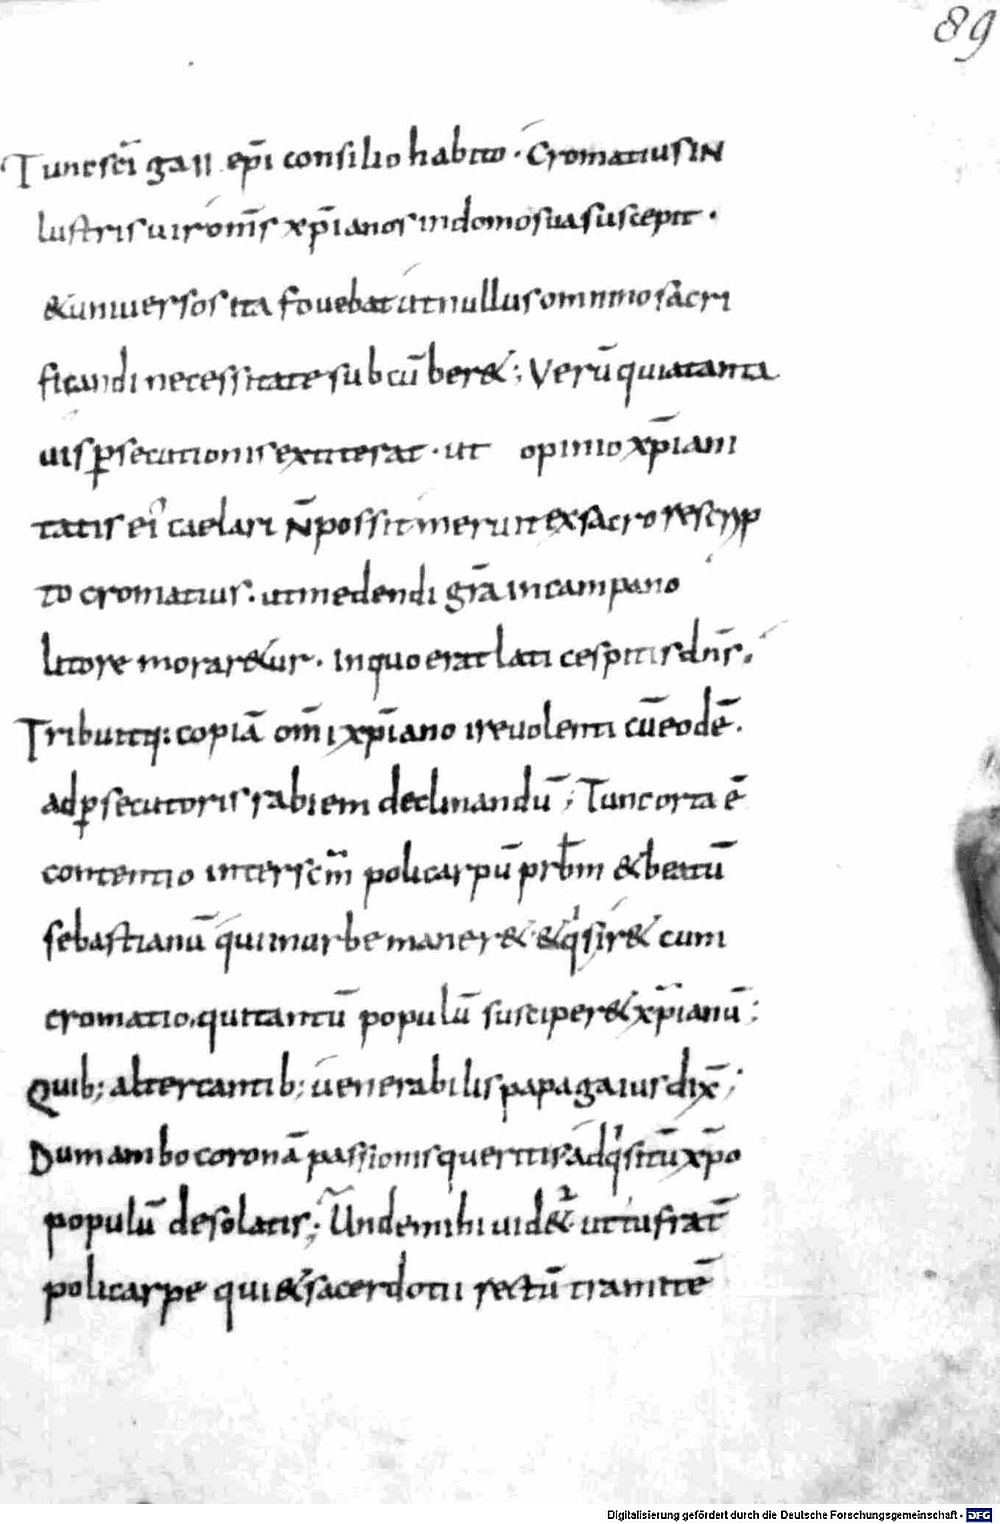 89
Tunc sc̄i gaii ep̄i consilio habito · Cromatius IN
lustris uir om̄s xp̄ianos in domo sua suscepit ·
& uniuersos ita fouebat ut nullus omnino sacri
ficandi necessitate subcū ber&; Verū quia tanta
uis ꝑsecutionis extiterat · ut opinio xp̄iani
tatis ei caelari N̄ possit meruit ex sacro rescrip
to cromatius · ut medendi gr̄a in campano
litore morar&ur · in quo erat lati cespitis dn̄s ·
Tribuitq: copiā om̄i xp̄iano ire uolenti cū eodē ·
ad ꝑsecutoris rabiem declinandū; Tunc orta ē
contentio inter sc̄m policarpū prb̄m & beatū
sebastianū qui in urbe maner& & q̇ sir& cum
cromatio · qui tantū populū susciper& xp̄ianū;
Quib; altercantib; uenerabilis papa gaius dix̄;
Dum ambo coronā passionis queritis adq̇situ̅ xp̄o
populū desolatis; Unde mihi uid& ut tu frat̄
policarpe qui & sacerdotii rectū tramitē
Digitalisierung gefördert durch die Deutsche Forschungsgemeinschaft - DFG